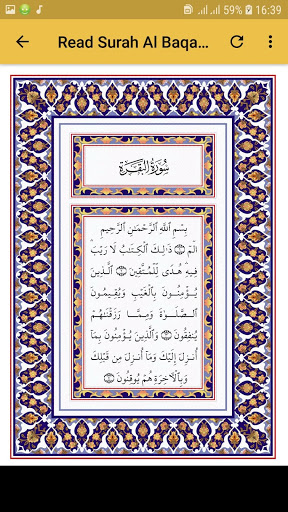 59% 16:39
Read Surah Al Baqa...
سُورَةُ الْبَقَرَةِ
بِسْمِ ٱللَّهِ ٱلرَّحْمَٰنِ ٱلرَّحِيمِ
الٓمٓ ۝١ ذَٰلِكَ ٱلْكِتَٰبُ لَا رَيْبَۛ
فِيهِۛ هُدًى لِّلْمُتَّقِينَ ۝٢ ٱلَّذِينَ
يُؤْمِنُونَ بِٱلْغَيْبِ وَيُقِيمُونَ
ٱلصَّلَوٰةَ وَمِمَّا رَزَقْنَٰهُمْ
يُنفِقُونَ ۝٣ وَٱلَّذِينَ يُؤْمِنُونَ بِمَآ
أُنزِلَ إِلَيْكَ وَمَآ أُنزِلَ مِن قَبْلِكَ
وَبِٱلْءَاخِرَةِ هُمْ يُوقِنُونَ ۝٤